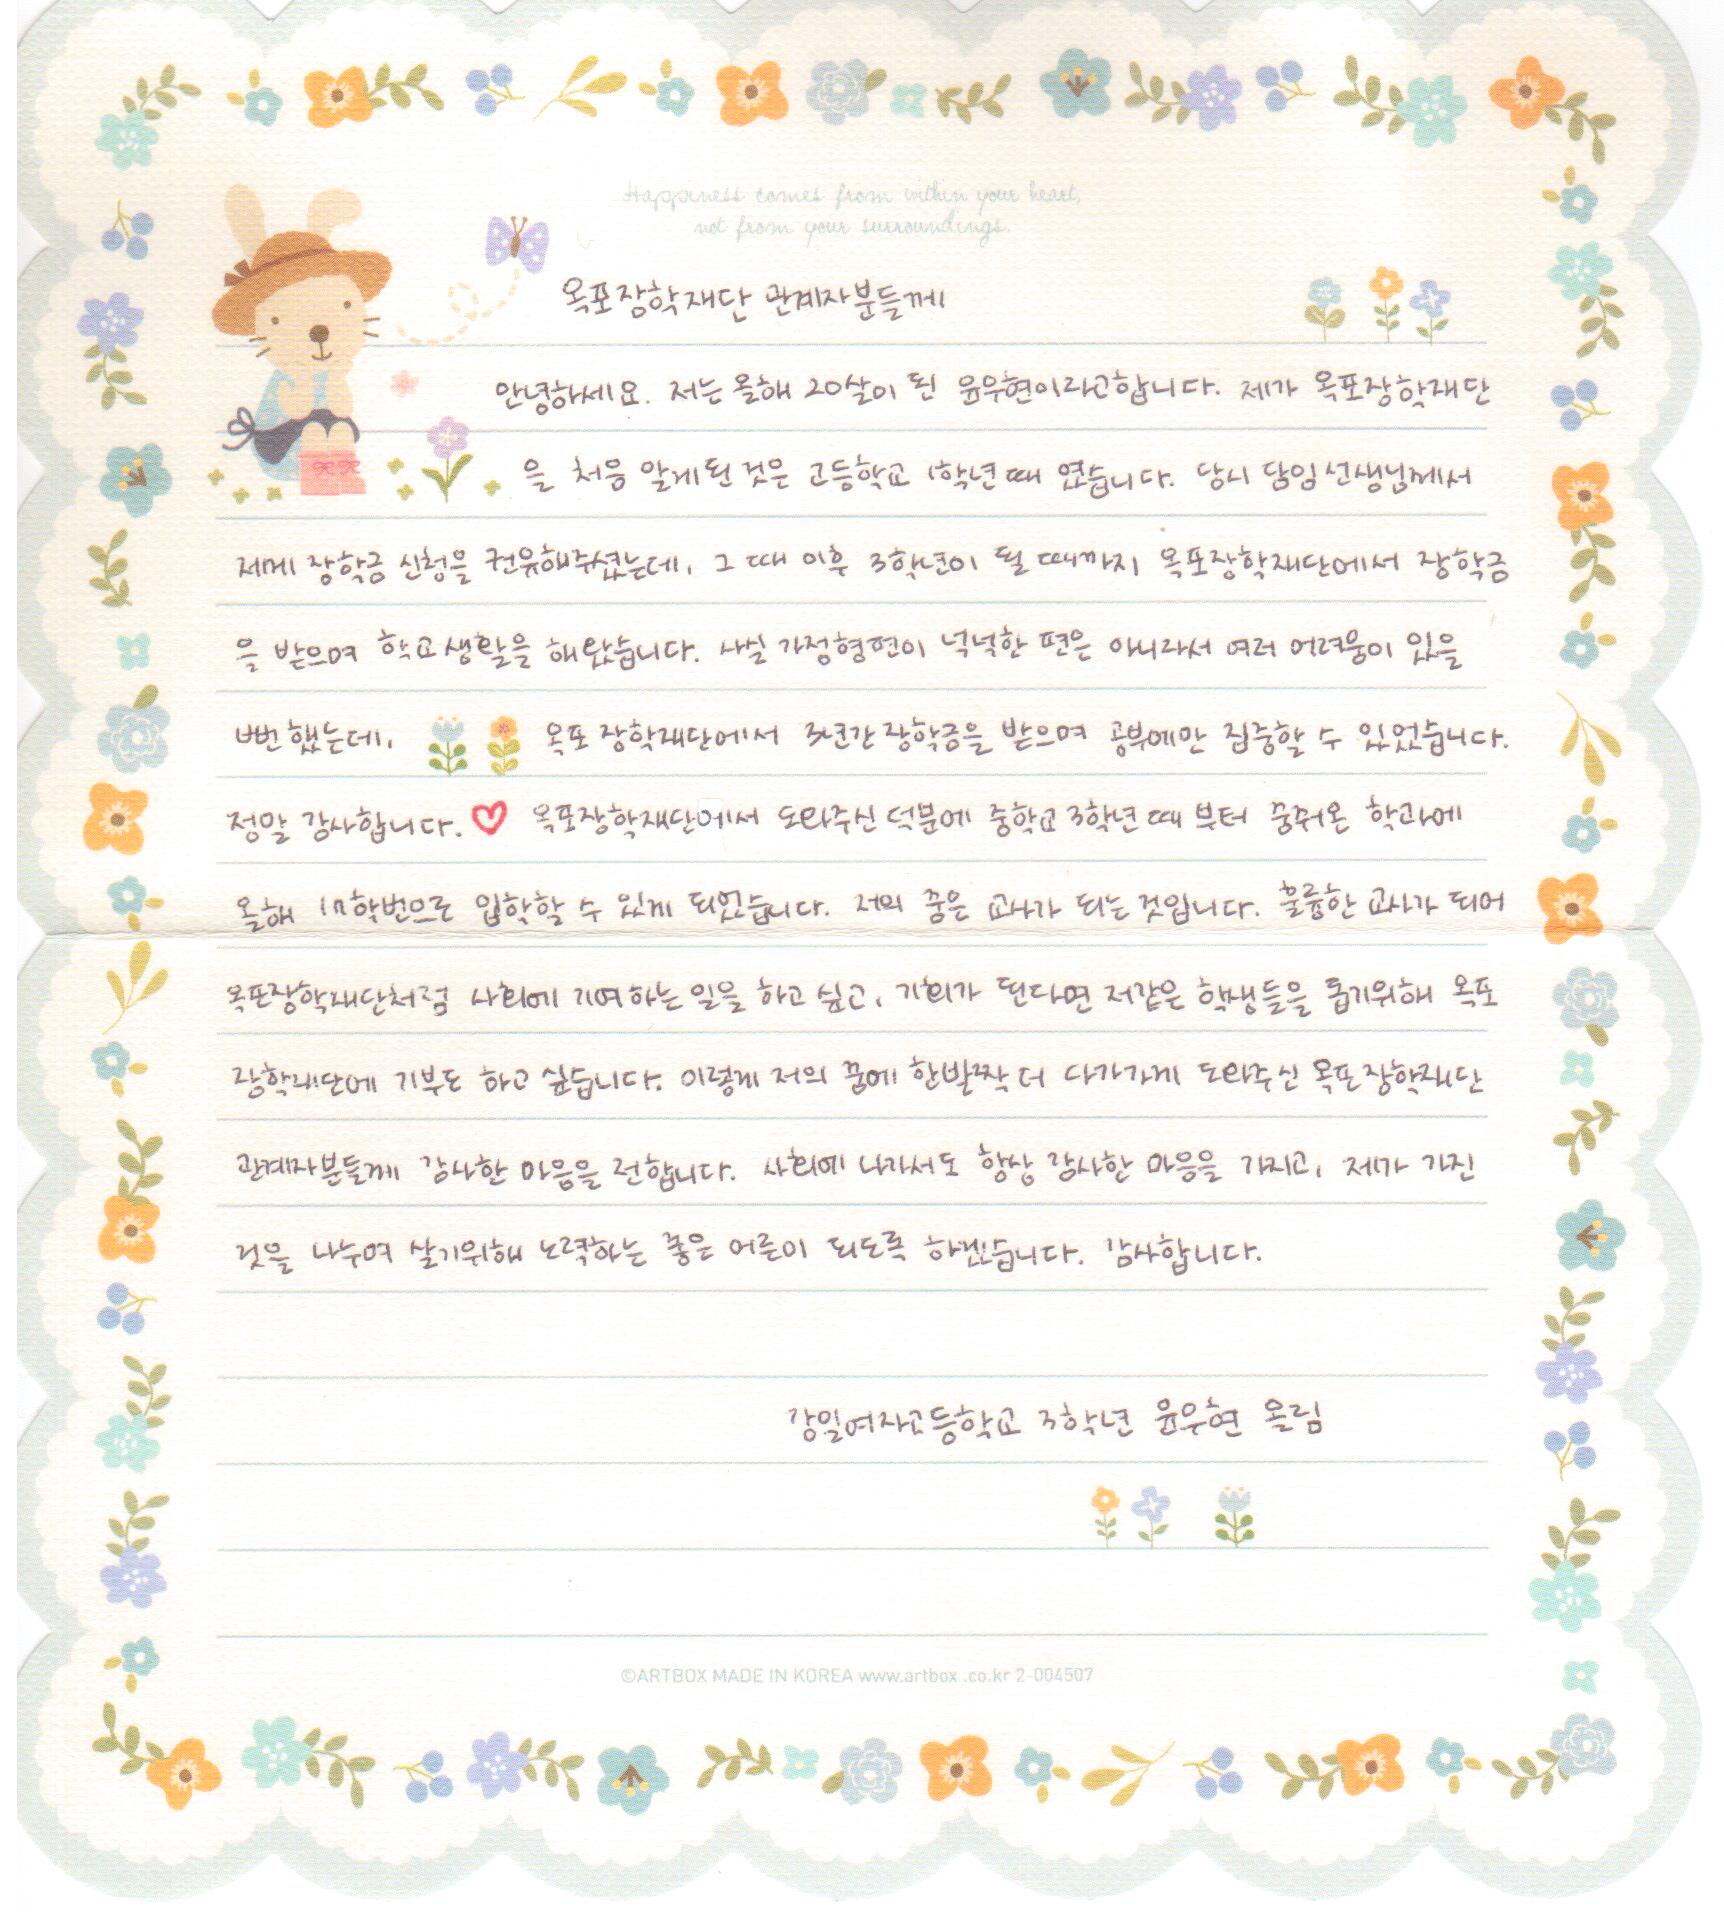 Happiness comes from within your heart,
not from your surroundings.
옥포장학재단 관계자분들께
안녕하세요. 저는 올해 20살이 된 윤우현이라고합니다. 제가 옥포장학재단
을 처음 알게된 것은 고등학교 1학년때 였습니다. 당시 담임선생님께서
제게 장학금 신청을 권유해주셨는데, 그 때 이후 3학년이 될 때까지 옥포장학재단에서 장학금
을 받으며 학교생활을 해왔습니다. 사실 가정형편이 넉넉한 편은 아니라서 여러 어려움이 있을
뻔했는데, 옥포 장학재단에서 3년간 장학금을 받으며 공부에만 집중할 수 있었습니다.
정말 감사합니다. 옥포장학재단에서 도와주신 덕분에 중학교 3학년 때 부터 꿈꿔온 학과에
올해 17학번으로 입학할 수 있게 되었습니다. 저의 꿈은 교사가 되는 것입니다. 훌륭한 교사가 되어
옥포장학재단처럼 사회에 기여하는 일을 하고 싶고, 기회가 된다면 저같은 학생들을 돕기위해 옥포
장학재단에 기부도 하고 싶습니다. 이렇게 저의 꿈에 한발짝 더 다가가게 도와주신 옥포장학재단
관계자분들께 감사한 마음을 전합니다. 사회에 나가서도 항상 감사한 마음을 가지고, 제가 가진
것을 나누며 살기위해 노력하는 좋은 어른이 되도록 하겠습니다. 감사합니다.
강일여자고등학교 3학년 윤우현 올림
©ARTBOX MADE IN KOREA www.artbox .co.kr 2-004507